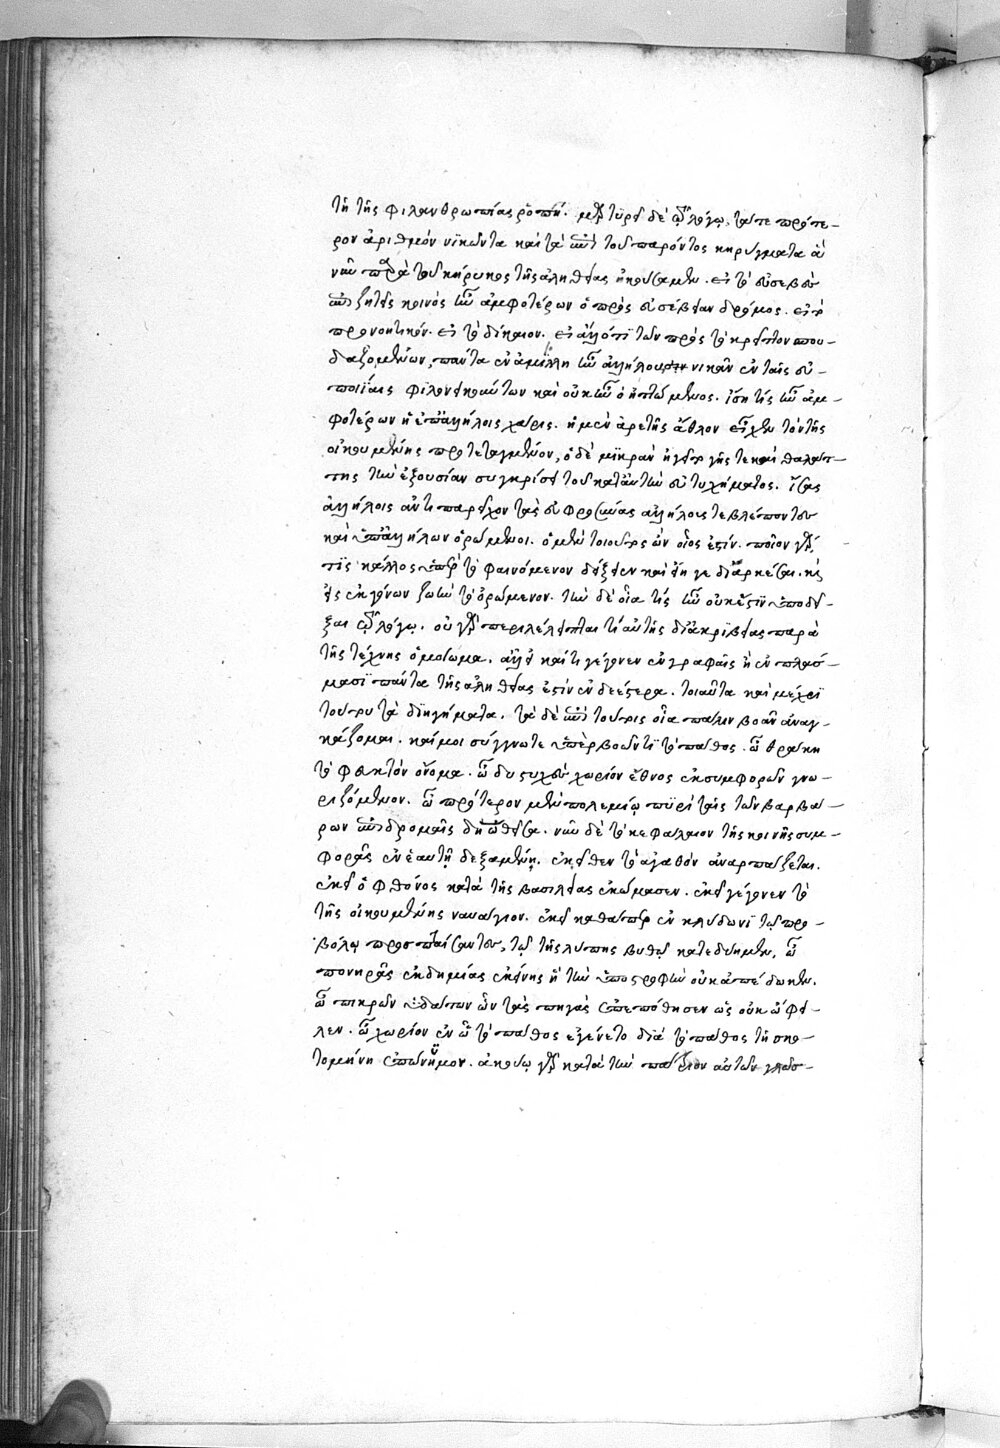 τῇ τῆς φιλανθρωπίας ῥοπῇ. μαρτυρεῖ δὲ τῷ λόγῳ, τά τε πρότε-
ρον ἀριθμὸν νικῶντα καὶ τὰ ἐπὶ τοῦ παρόντος κηρύγματα ἃ
νῦν παρὰ τοῦ κήρυκος τῆς ἀληθείας ἠκούσαμεν. εἰ τὸ εὐσεβὲς
ἐπιζητεῖς κοινὸς ἦν ἀμφοτέρων ὁ πρὸς εὐσέβειαν δρόμος. εἰ τὸ
προνοητικόν. εἰ τὸ δίκαιον. εἰ ἄλλό τι τῶν πρὸς τὸ κρεῖττον σπου-
δαζομένων, πάντα ἐν ἁμίλλῃ ἦν ἀλλήλους νικᾶν ἐν ταῖς εὐ-
ποιΐαις φιλονεικούντων καὶ οὐκ ἦν ὁ ἡττώμενος. ἴση τίς ἦν ἀμ-
φοτέρων ἡ ἐπ' ἀλλήλοις χάρις. ἡ μὲν ἀρετῆς ἆθλον εἶχεν τὸν τῆς
οἰκουμένης προτεταγμένον, ὁ δὲ μικρὰν ἡγεῖτο γῆς τε καὶ θαλάτ-
της τὴν ἐξουσίαν συγκρίσει τοῦ κατ' αὐτὴν εὐτυχήματος. ἴσας
ἀλλήλοις ἀντιπαρεῖχον τὰς εὐφροσύνας ἀλλήλους τε βλέποντες
καὶ ὑπ' ἀλλήλων ὁρώμενοι. ὁ μὲν τοιοῦτος ὢν οἷός ἐστιν. ποῖον γάρ
τις κάλλος ὑπὲρ τὸ φαινόμενον δείξειεν καὶ εἴη γε διαρκέσαι. καὶ
εἰς ἐκγόνων ζωὴν τὸ ὁρώμενον. τὴν δὲ οἵα τίς ἦν οὐκ ἔστιν ὑποδεῖ-
ξαι τῷ λόγῳ. οὐ γὰρ περιλέλειπται τί αὐτῆς δι' ἀκριβείας παρὰ
τῆς τέχνης ὁμοίωμα. ἀλλ' εἰ καί τι γέγονεν ἐν γραφαῖς ἢ ἐν πλάσ-
μασι πάντα τῆς ἀληθείας ἐστὶν ἐνδεέστερα. τοιαῦτα καὶ μέχρι
τούτου τὰ διηγήματα. τὰ δὲ ἐπὶ τούτοις οἷα πάλιν βοᾶν ἀναγ-
κάζομαι. καί μοι σύγγνωτε ὑπερβοῶντι τὸ πάθος. ὦ Θρᾴκη
τὸ φευκτὸν ὄνομα. ὦ δυστυχὲς χωρίον ἔθνος ἐκ συμφορῶν γνω-
ριζόμενον. ὦ πρότερον μὲν πολεμίῳ πυρὶ ταῖς τῶν βαρβά-
ρων ἐπιδρομαῖς δῃωθεῖσα. νῦν δὲ τὸ κεφάλαιον τῆς κοινῆς συμ-
φορᾶς ἐν ἑαυτῇ δεξαμένη. ἐκεῖθεν τὸ ἀγαθὸν ἀναρπάζεται.
ἐκεῖ ὁ φθόνος κατὰ τῆς βασιλείας ἐκώμασεν. ἐκεῖ γέγονεν τὸ
τῆς οἰκουμένης ναυάγιον. ἐκεῖ καθάπερ ἐν κλύδωνι τῷ προ-
βόλῳ προσπταίσαντες, τῷ τῆς λύπης βυθῷ κατέδυμεν. ὦ
πονηρᾶς ἐκδημίας ἐκείνης ἣ τὴν ὑποστροφὴν οὐκ ἀπέδωκεν.
ὦ πικρῶν ὑδάτων ὧν τὰς πηγὰς ἐπεπόθησεν ὡς οὐκ ὤφε-
λεν. ὦ χωρίον ἐν ᾧ τὸ πάθος ἐγένετο διὰ τὸ πάθος τῇ σκο-
τομήνῃ ἐπώνυμον. ἀκούω γὰρ κατὰ τὴν πάτριον αὐτῶν γλῶσ-